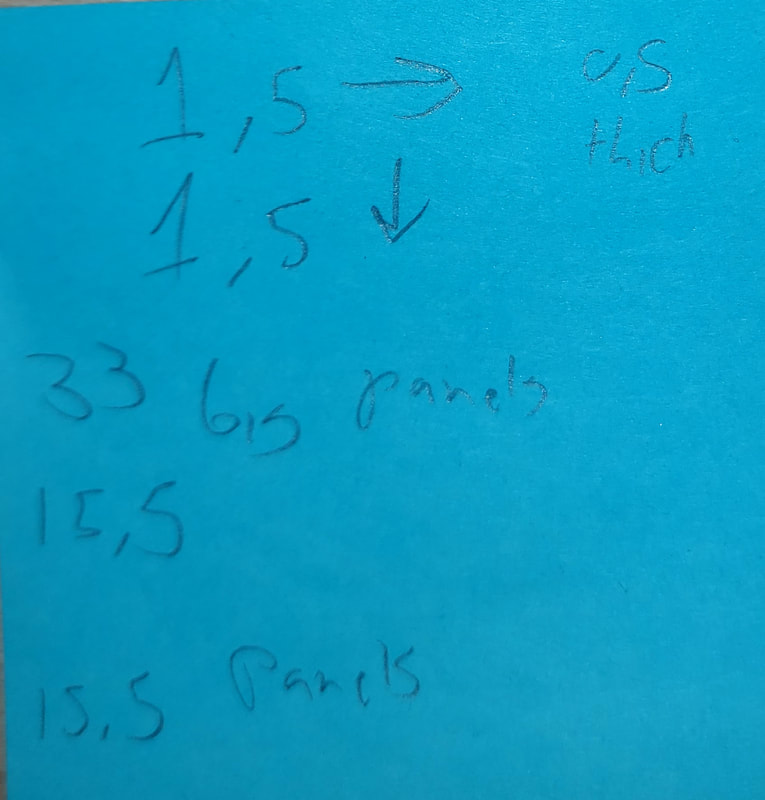 1,5 → 0,5
thick
1,5 ↓
33 big panels
15,5
15,5 Panels